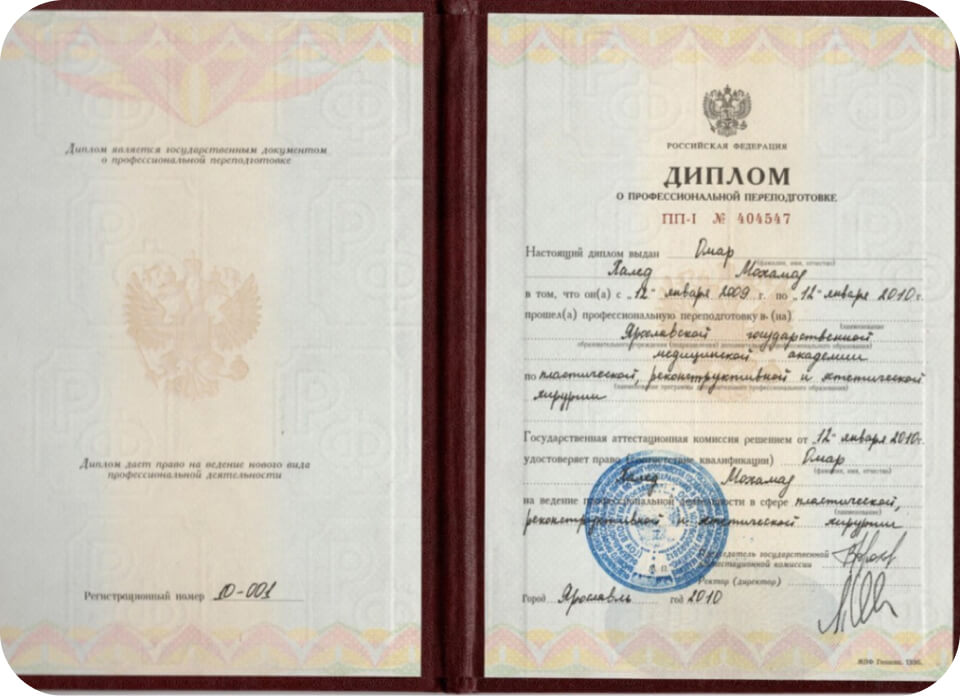 Диплом является государственным документом
о профессиональной переподготовке
Диплом дает право на ведение нового вида
профессиональной деятельности
Регистрационный номер 10-001
РОССИЙСКАЯ ФЕДЕРАЦИЯ
ДИПЛОМ
О ПРОФЕССИОНАЛЬНОЙ ПЕРЕПОДГОТОВКЕ
ПП-I № 404547
Настоящий диплом выдан Омар
(фамилия, имя, отчество)
Халед Мохамад
в том, что он(а) с „12“ января 2009 г. по „12“ января 2010 г.
прошел(а) профессиональную переподготовку в (на)
(наименование
Ярославской государственной
образовательного учреждения (подразделения) дополнительного профессионального образования)
медицинской академии
по пластической, реконструктивной и эстетической
(наименование программы дополнительного профессионального образования)
хирургии
Государственная аттестационная комиссия решением от „12“ января 2010 г.
удостоверяет право (соответствие квалификации) Омар
(фамилия, имя, отчество)
Халед Мохамад
на ведение профессиональной деятельности в сфере пластической,
(наименование)
реконструктивной и эстетической хирургии
Председатель государственной
аттестационной комиссии
М. П.
Ректор (директор)
Город Ярославль год 2010
МПФ Гознака. 1996.